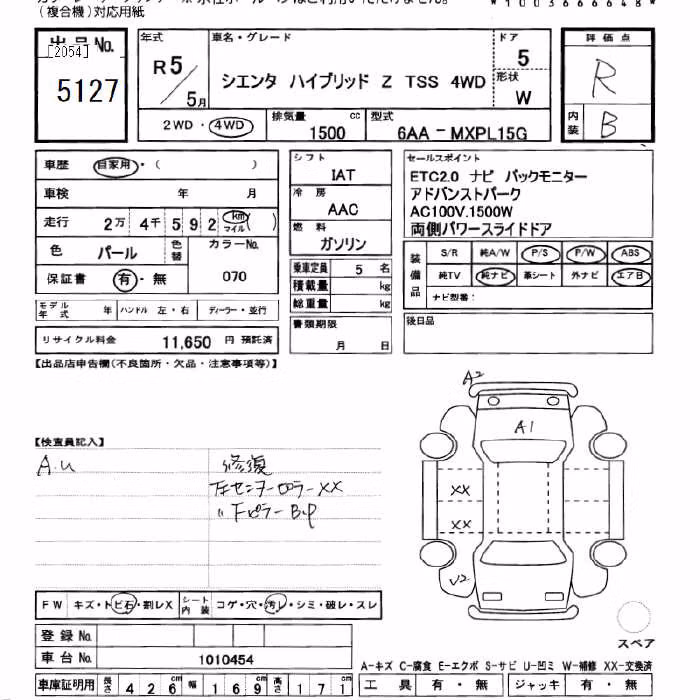 (複合機)対応用紙
*1003666648*
出品No.
[2054]
5127
年式
R5/5月
車名・グレード
シエンタ ハイブリッド Z TSS 4WD
ドア
5
形状
W
2WD・4WD
排気量
1500 cc
型式
6AA-MXPL15G
評価点
R
内装
B
車歴 自家用・( )
車検 年 月
走行 2万 4千 5 9 2 km マイル ( )
色 パール 色替 カラーNo.
保証書 有・無 070
モデル年式 年 ハンドル 左・右 ディーラー・並行
リサイクル料金 11,650 円 預託済
シフト
IAT
冷房
AAC
燃料
ガソリン
乗車定員 5 名
積載量 kg
総重量 kg
書類期限
月 日
セールスポイント
ETC2.0 ナビ バックモニター
アドバンストパーク
AC100V.1500W
両側パワースライドドア
装備品
S/R 純A/W P/S P/W ABS
純TV 純ナビ 革シート 外ナビ エアB
ナビ型番:
後日品
【出品店申告欄(不良箇所・欠品・注意事項等)】
【検査員記入】
A.U
修復
左センターピラーXX
〃 下ピラーB.P
A2
A1
XX
XX
U2
FW キズ・トビ石・割レX シート内装 コゲ・穴・汚レ・シミ・破レ・スレ
登録No.
車台No. 1010454
車庫証明用 長さ 426cm 幅 169cm 高さ 171cm
スペア
A-キズ C-腐食 E-エクボ S-サビ U-凹ミ W-補修 XX-交換済
工具 有・無 ジャッキ 有・無